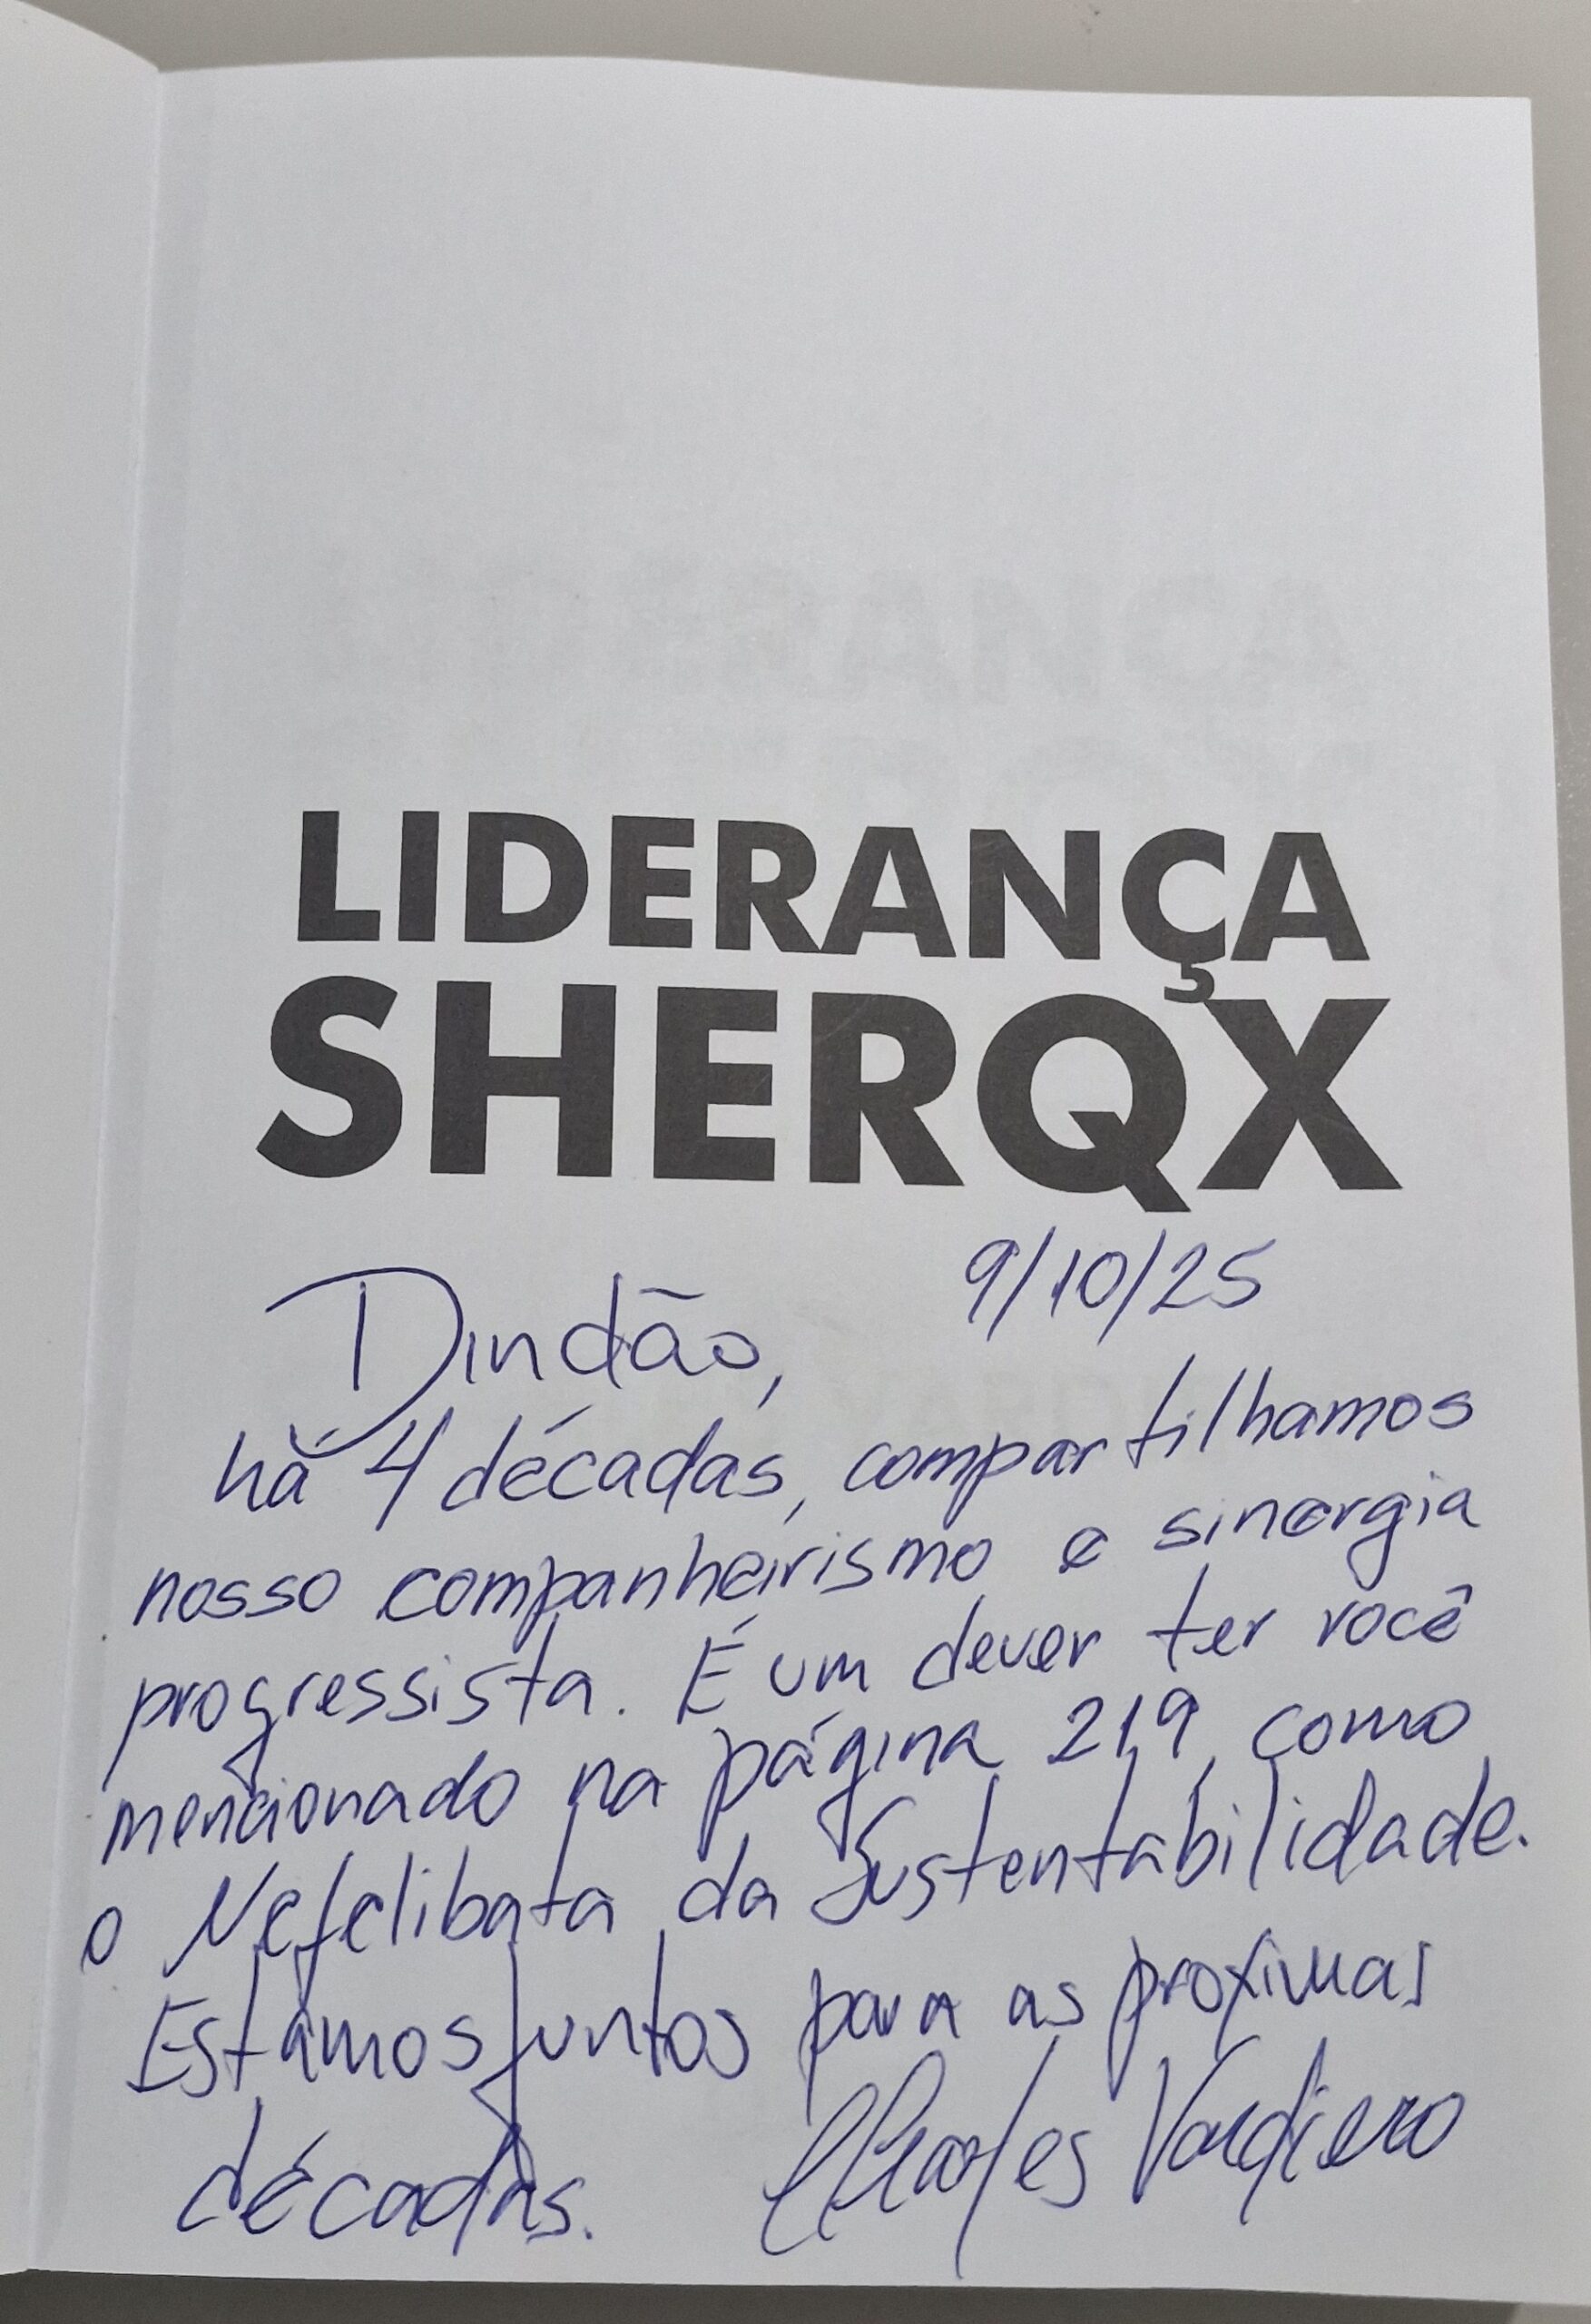 LIDERANÇA
SHERQX
9/10/25
Dindão,
há 4 décadas, compartilhamos
nosso companheirismo e sinergia
progressista. É um dever ter você
mencionado na página 219, como
o Nefelibata da Sustentabilidade.
Estamos juntos para as proximas
décadas. Charles